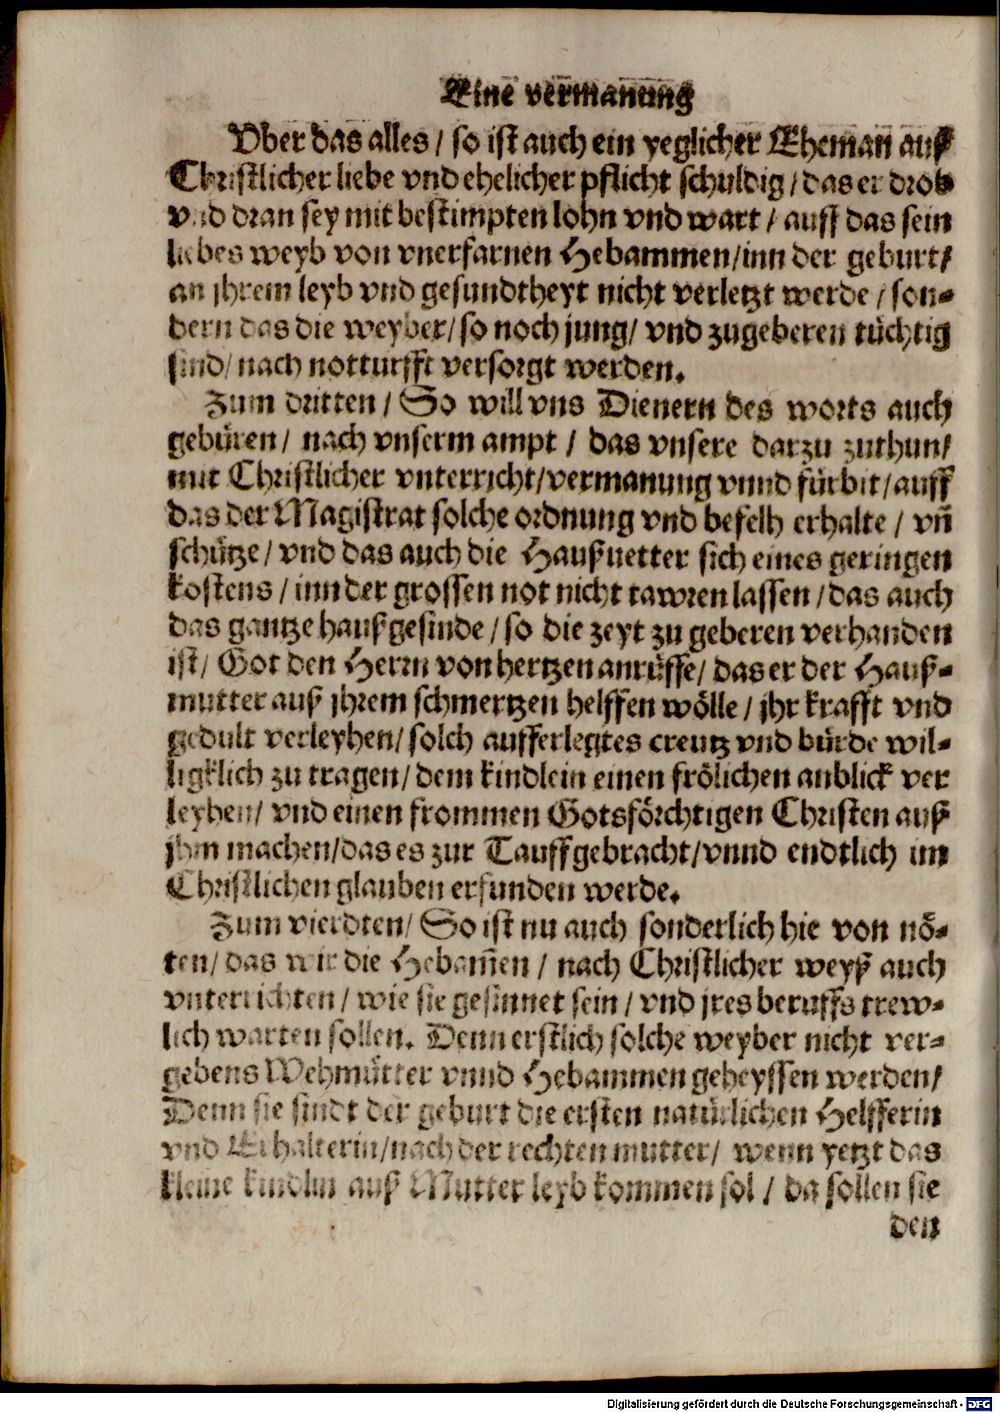 Eine vermanung
Vber das alles / so ist auch ein yeglicher Eheman auß
Christlicher liebe vnd ehelicher pflicht schuldig / das er drob
vnd dran sey mit bestimpten lohn vnd wart / auff das sein
liebes weyb von vnerfarnen Hebammen / inn der geburt /
an jhrem leyb vnd gesundtheyt nicht verletzt werde / son-
dern das die weyber / so noch jung / vnd zugeberen tüchtig
sind / nach notturfft versorgt werden.
Zum dritten / So will vns Dienern des worts auch
gebüren / nach vnserm ampt / das vnsere darzu zuthun /
mit Christlicher vnterricht / vermanung vnnd fürbit / auff
das der Magistrat solche ordnung vnd befelh erhalte / vñ
schütze / vnd das auch die Haußuetter sich eines geringen
kostens / inn der grossen not nicht tawren lassen / das auch
das gantze haußgesinde / so die zeyt zu geberen verhanden
ist / Got den Herrn von hertzen anrüffe / das er der Hauß-
mutter auß jhrem schmertzen helffen wölle / jhr krafft vnd
gedult verleyhen / solch aufferlegtes creutz vnd bürde wil-
ligklich zu tragen / dem kindlein einen frölichen anblick ver
leyhen / vnd einen frommen Gotsförchtigen Christen auß
jhm machen / das es zur Tauff gebracht / vnnd endtlich im
Christlichen glauben erfunden werde.
Zum vierdten / So ist nu auch sonderlich hie von nö-
ten / das wir die Hebam̄en / nach Christlicher weyß auch
vnterrichten / wie sie gesinnet sein / vnd jres beruffs trew-
lich warten sollen. Denn erstlich solche weyber nicht ver-
gebens Wehmütter vnnd Hebammen geheyssen werden /
Denn sie sindt der geburt die ersten natürlichen Helfferin
vnd Erhalterin / nach der rechten mutter / wenn yetzt das
kleine kindlin auß Mutter leyb kommen sol / da sollen sie
den
Digitalisierung gefördert durch die Deutsche Forschungsgemeinschaft - DFG